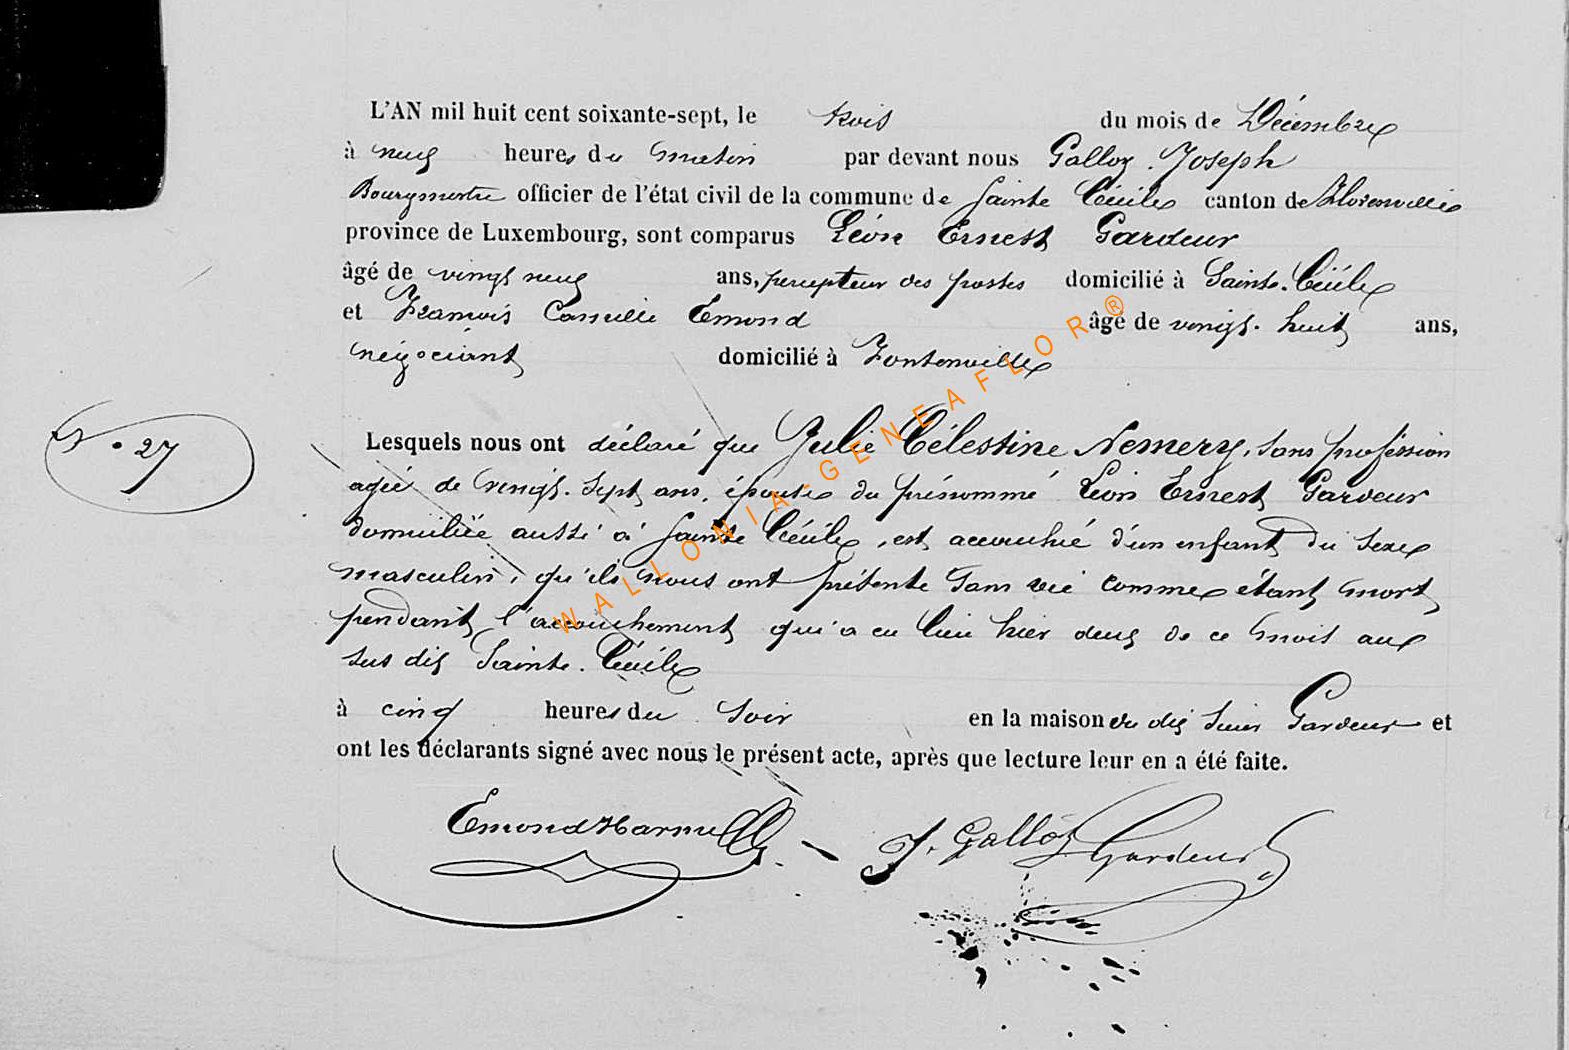 L'AN mil huit cent soixante-sept, le trois du mois de Décembre
à neuf heures du matin par devant nous Galloy Joseph
Bourgmestre officier de l'état civil de la commune de Sainte Cécile canton de Florenville
province de Luxembourg, sont comparus Léon Ernest Gardeur
âgé de vingt neuf ans, percepteur des postes domicilié à Sainte-Cécile
et François Camille Emond âgé de vingt-huit ans,
négociant domicilié à Fontenoille
N° 27
Lesquels nous ont déclaré que Julie Célestine Nemery, sans proféssion
agée de vingt-sept ans, épouse du prénommé Léon Ernest Gardeur
domiciliée aussi à Sainte Cécile, est accouchée d'un enfant du sexe
masculin, qu'ils nous ont présenté sans vie comme étant mort
pendant l'accouchement qui a eu lieu hier deux de ce mois au
sus dit Sainte-Cécile
à cinq heures du soir en la maison du dit sieur Gardeur et
ont les déclarants signé avec nous le présent acte, après que lecture leur en a été faite.
Emond J. Galloy Gardeur
WALLONIA-GENEAFLOR®